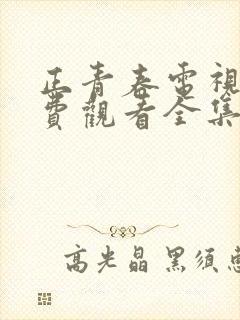 正青春電視
費觀看全集
高光晶 黑須惠